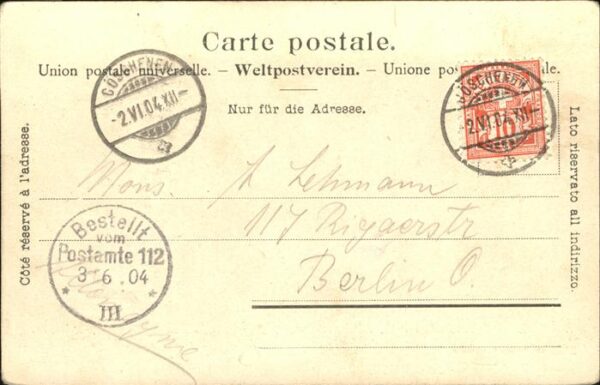 Carte postale.
Union postale universelle. – Weltpostverein. – Unione po le.
Nur für die Adresse.
Côté réservé à l'adresse.
Lato riservato all indirizzo.
GÖSCHENEN
-2.VI.04.XII-
GÖSCHENEN
-2.VI.04.XII-
10
Mons. A Lehmann
117 Rigaerstr
Berlin O.
Bestellt
vom
Postamte 112
3 6 04
* III *